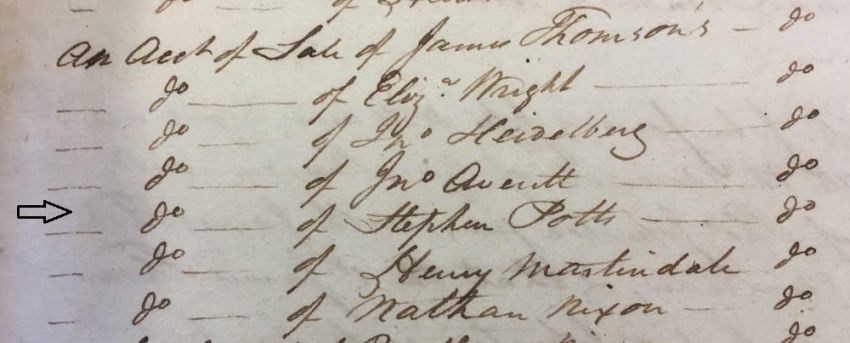 do of do
An Acct of Sale of James Thomson's — do
— do — of Eliza. Wright — do
— do — of Jno Heidelberg — do
— do — of Jno Averitt — do
— do — of Stephen Potts — do
— do — of Henry Mastindale do
— do — of Nathan Nixon — do
do